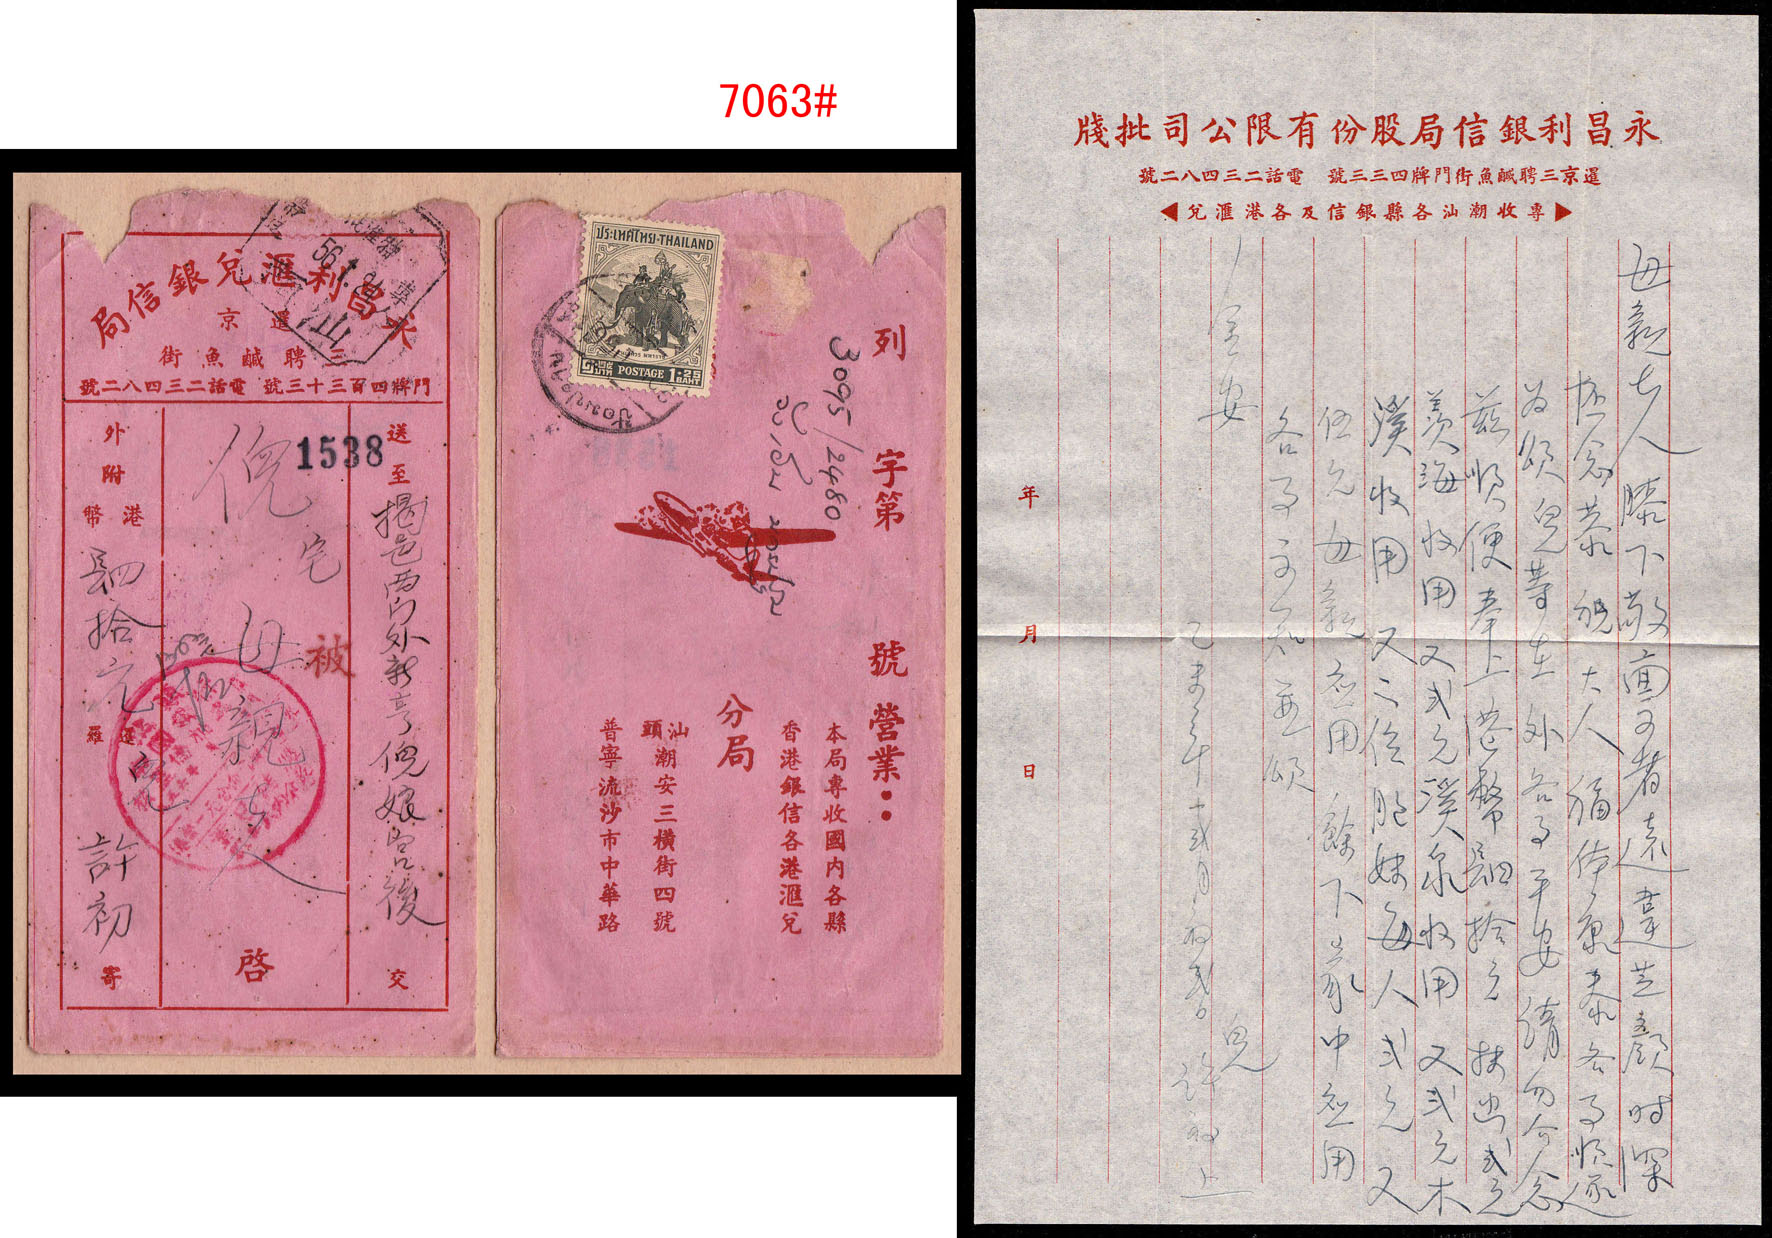 7063#
永昌利滙兌銀信局
暹京
三聘鹹魚街
門牌四百三十三號 電話二三四八二號
56.1.24
汕
1538
送至
揭邑西门外新亨倪娘宫後
交
倪宅
母親大人
被
啓
外附港幣
肆拾元
暹羅
許初
寄
ประเทศไทย-THAILAND
POSTAGE 1.25
BAHT
3095/2480
列字第 號營業:
本局專收國內各縣
香港銀信各港滙兌
分局
汕頭潮安三橫街四號
普寧流沙市中華路
永昌利銀信局股份有限公司批牋
暹京三聘鹹魚街門牌四三三號 電話二三四八二號
▶專收潮汕各縣銀信及各港滙兌◀
母親大人膝下敬啚可者遠違芝顏时深
拯念恭祝大人福体康泰各事順遂
为颂兒等在外各事平安请勿介念
兹順便奉上港幣肆拾元抹出弍元
羡海收用又弍元溪泉收用又弍元木
溪收用又二位胞妹每人弍元又
伍元母親应用餘下家中应用
各事可知並颂
金安
兒
乙未年十弍月初弍日 許初上
年
月
日